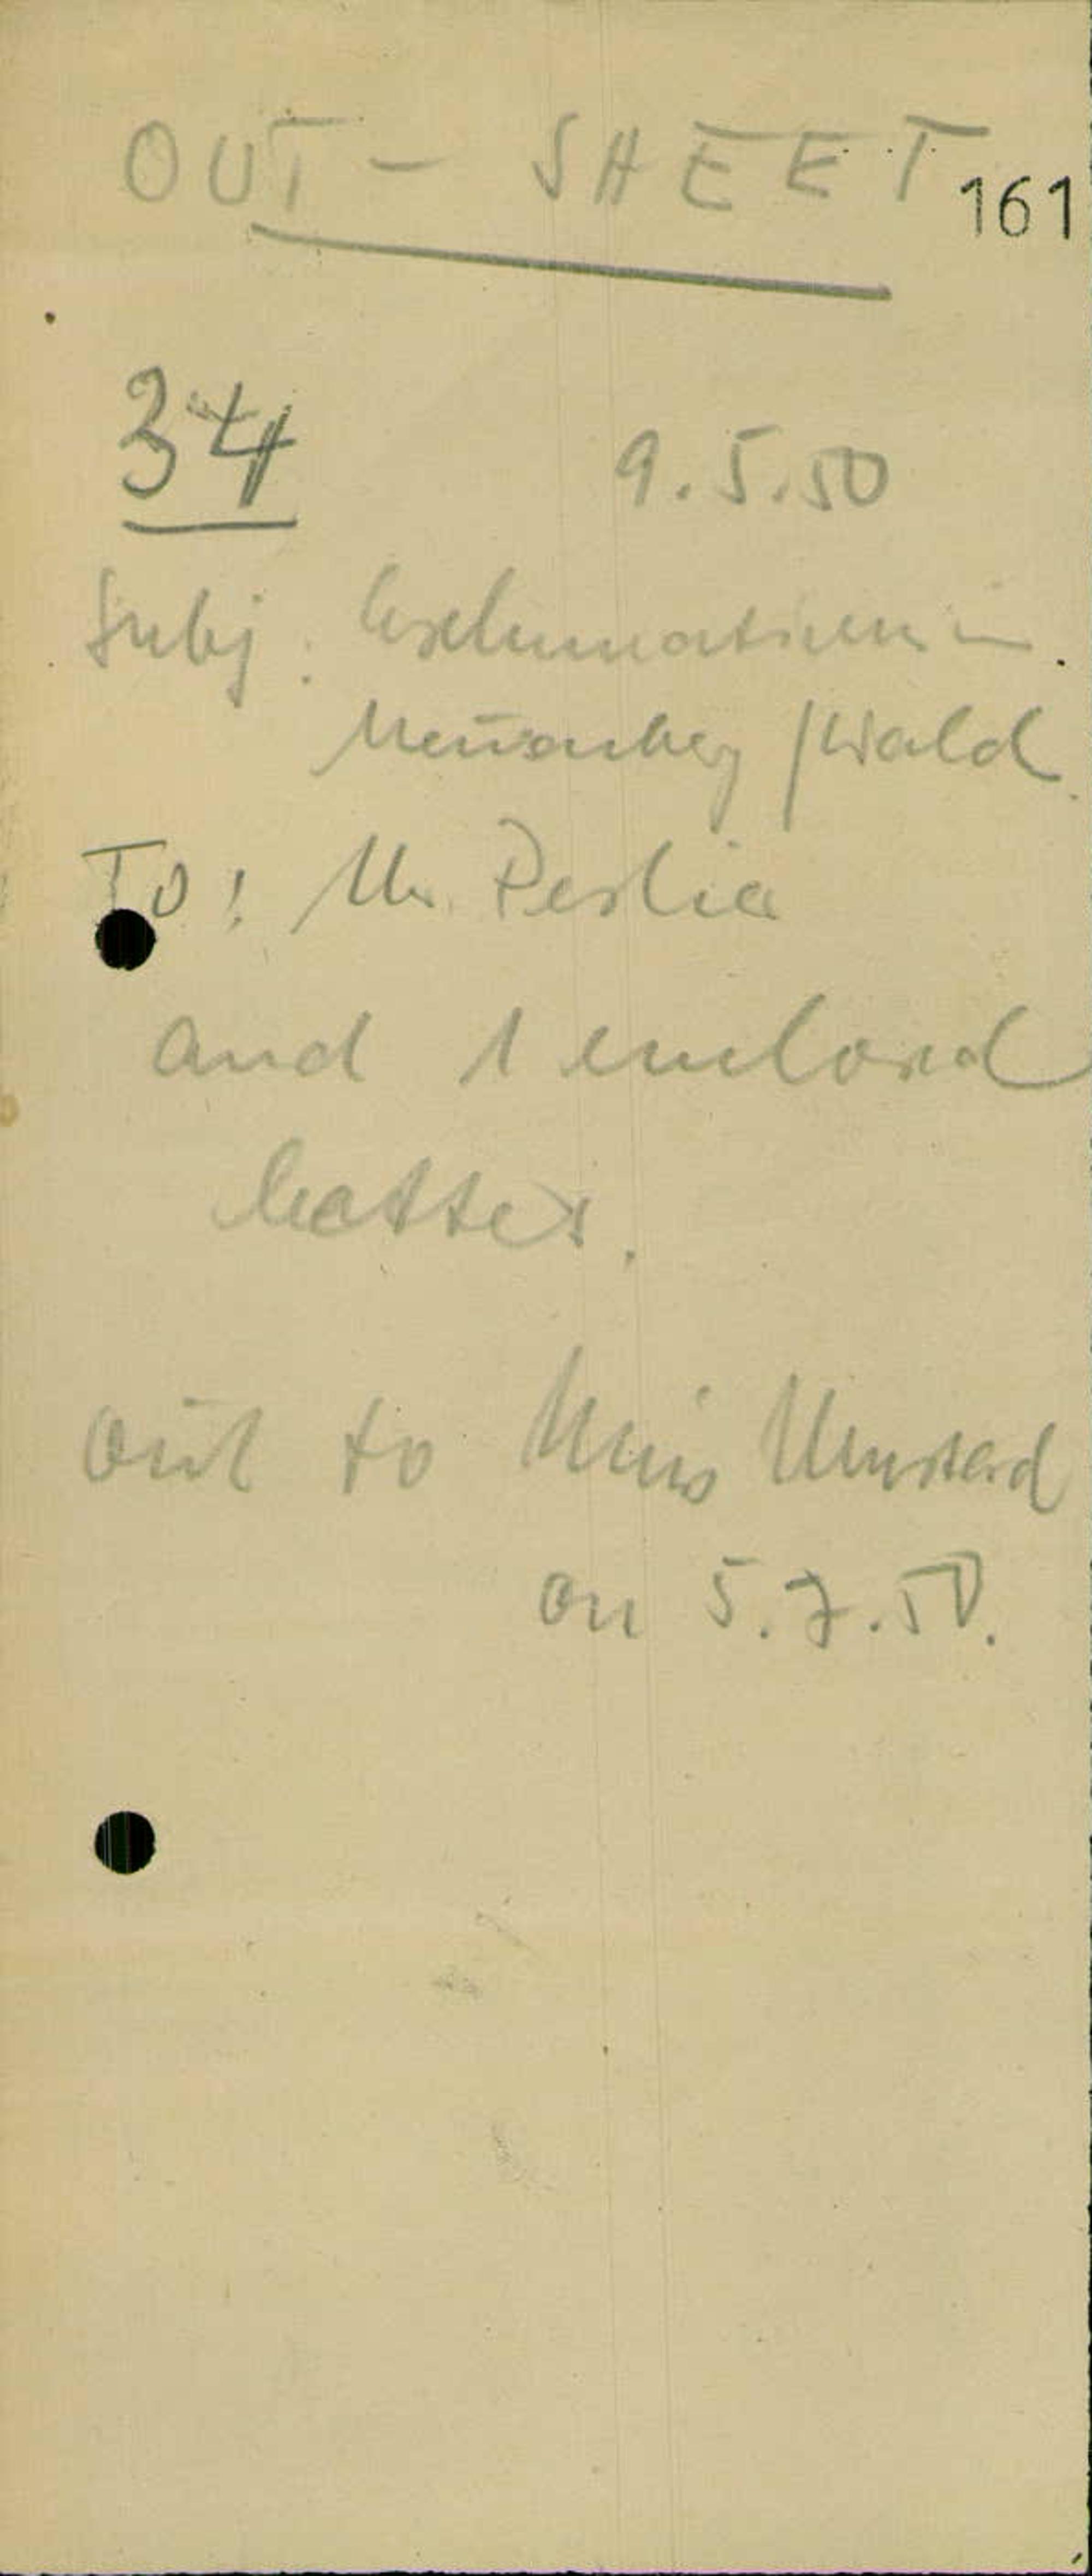 OUT - SHEET
161
34
9.5.50
Subj: Exhumation in
Neunburg /Wald
To: Mr.
and 1 enclosed
letter.
out to Miss
on 5.7.50.